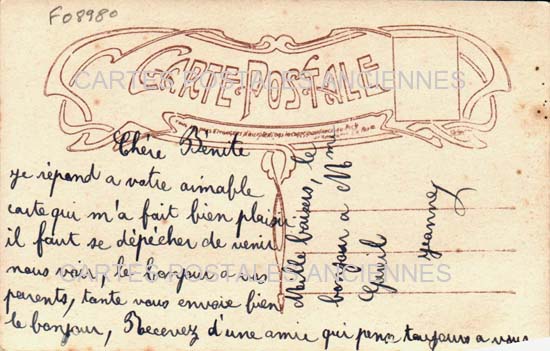 F08980
CARTE POSTALE
CARTES POSTALES ANCIENNES
Chére Benite
je répond a votre aimable
carte qui m'a fait bien plaisir
il faut se dépécher de venir
nous voir, le bonjour a vos
parents, tante vous envoie bien
le bonjour, Recevez d'une amie qui pense toujours a vous
Mille baisers, le
bonjour a Mme
Jeanne
CARTES POSTALES ANCIENNES